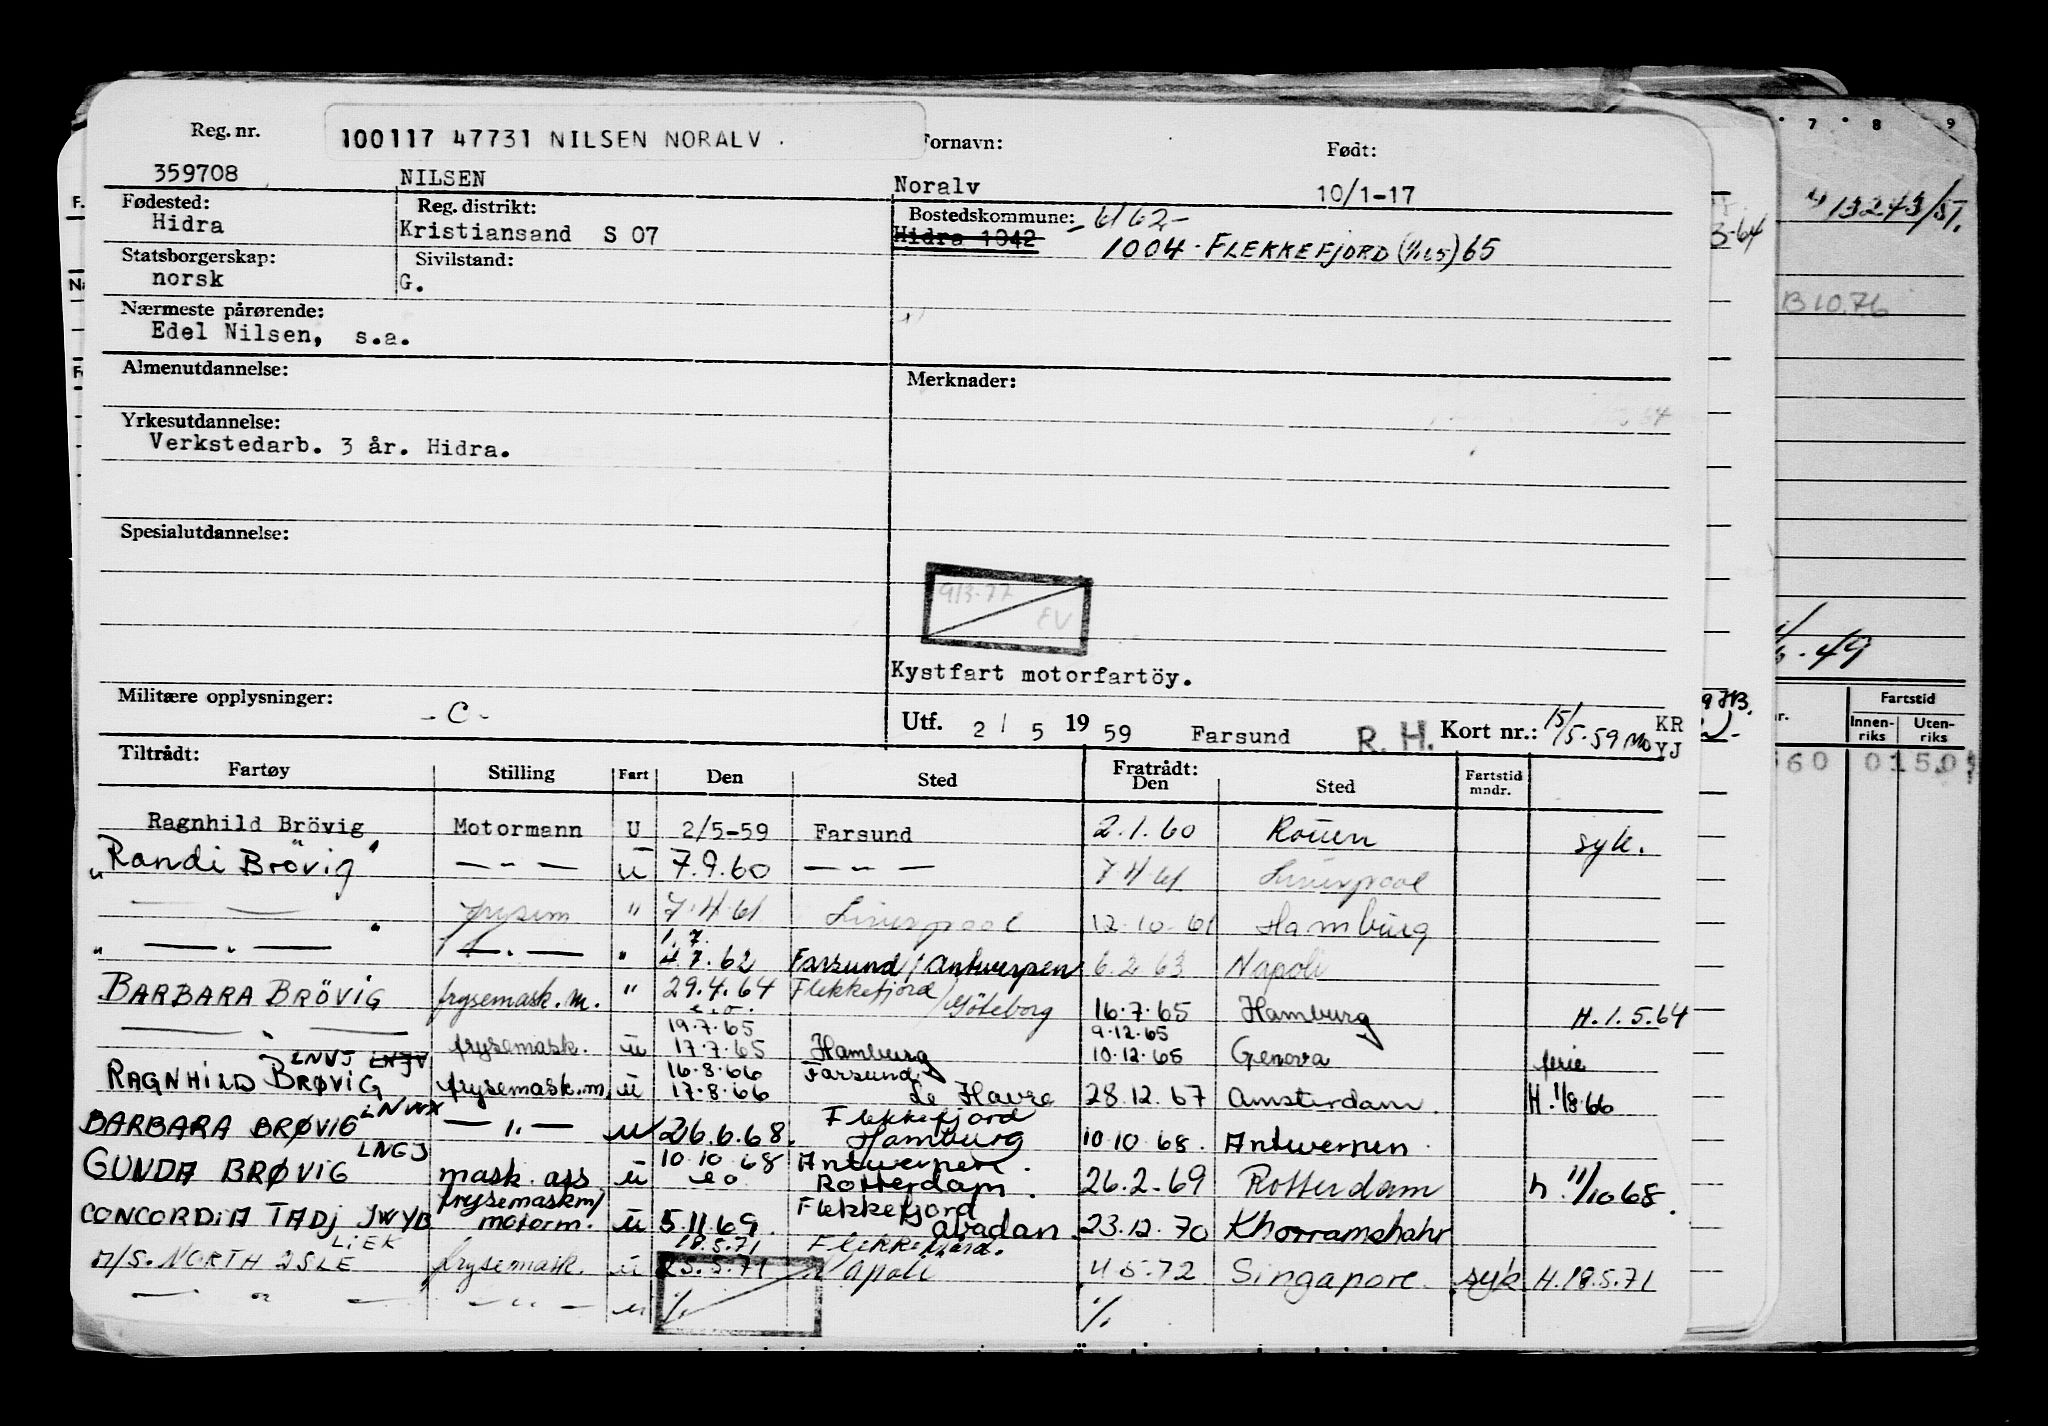 Reg. nr. 100117 47731 NILSEN NORALV . Fornavn: Født:
359708 NILSEN Noralv 10/1-17
Fødested: Reg. distrikt: Bostedskommune: 6162-
Hidra Kristiansand S 07 Hidra 1042
1004 - FLEKKEFJORD (1/1 65) 65
Statsborgerskap: Sivilstand:
norsk G.
Nærmeste pårørende:
Edel Nilsen, s.a.
Almenutdannelse: Merknader:
Yrkesutdannelse:
Verkstedarb. 3 år. Hidra.
Spesialutdannelse:
913-77
EV
Kystfart motorfartöy.
Militære opplysninger: - C -
Utf. 2 / 5 19 59 Farsund R. H. Kort nr.: 15/5-59 Mo KR
YJ
Tiltrådt: Fratrådt:
Fartøy Stilling Fart Den Sted Den Sted Fartstid mndr.
Ragnhild Brövig Motormann U 2/5-59 Farsund 2.1.60 Rouen syk.
"Randi Brövig" — " — U 7.9.60 — " — 7.4.61 Liverpool
— — frysem " 7.4.61 Liverpool 12.10.61 Hamburg
1.7.
" — " — " — " — " 4.7.62 Farsund / Antwerpen 6.2.63 Napoli
BARBARA BRÖVIG frysemask.m. " 29.4.64 Flekkefjord / Göteborg 16.7.65 Hamburg H.1.5.64
19.7.65 9.12.65
— " — frysemask. u 17.7.65 Hamburg 10.12.65 Genova ferie
LNVJ LNJV 16.8.66 Farsund
RAGNHILD BRØVIG frysemask.m. u 17.8.66 Le Havre 28.12.67 Amsterdam. H.1/8.66
LNWX Flekkefjord
BARBARA BRØVIG — " — u 26.6.68. Hamburg 10.10.68. Antwerpen.
LNGJ 10.10.68 Antwerpen.
GUNDA BRØVIG mask. ass u Rotterdam. 26.2.69 Rotterdam h. 11/10 68.
frysemaskm/ Flekkefjord
CONCORDiA TADJ JWYB motorm. u 5.11.69. abadan. 23.12.70 Khorramshahr
LiEK 18.5.71 Flekkefjord.
M/S. NORTH ISLE frysemask. u 25.5.71 Napoli 4.5.72 Singapore. syk H.18.5.71
— " — — " — u %. %.
7 8 9
13273/51.
3-64
B 10.76
49
Fartstid
Innen-
riks
Uten-
riks
560 0150